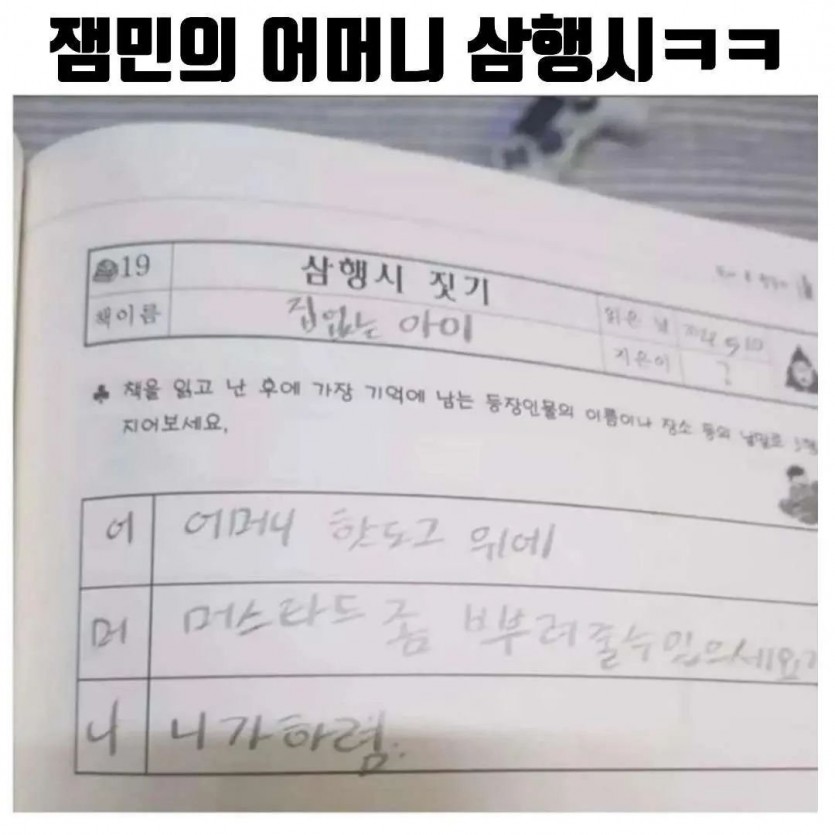 잼민의 어머니 삼행시ㅋㅋ
19 삼행시 짓기
책이름 집없는 아이 읽은 날
지은이 ?
♣ 책을 읽고 난 후에 가장 기억에 남는 등장인물의 이름이나 장소 등의 낱말로 3행
지어보세요.
어 어머니 핫도그 위에
머 머스타드 좀 ㅂ부려줄수있으세요?
니 니가하렴.